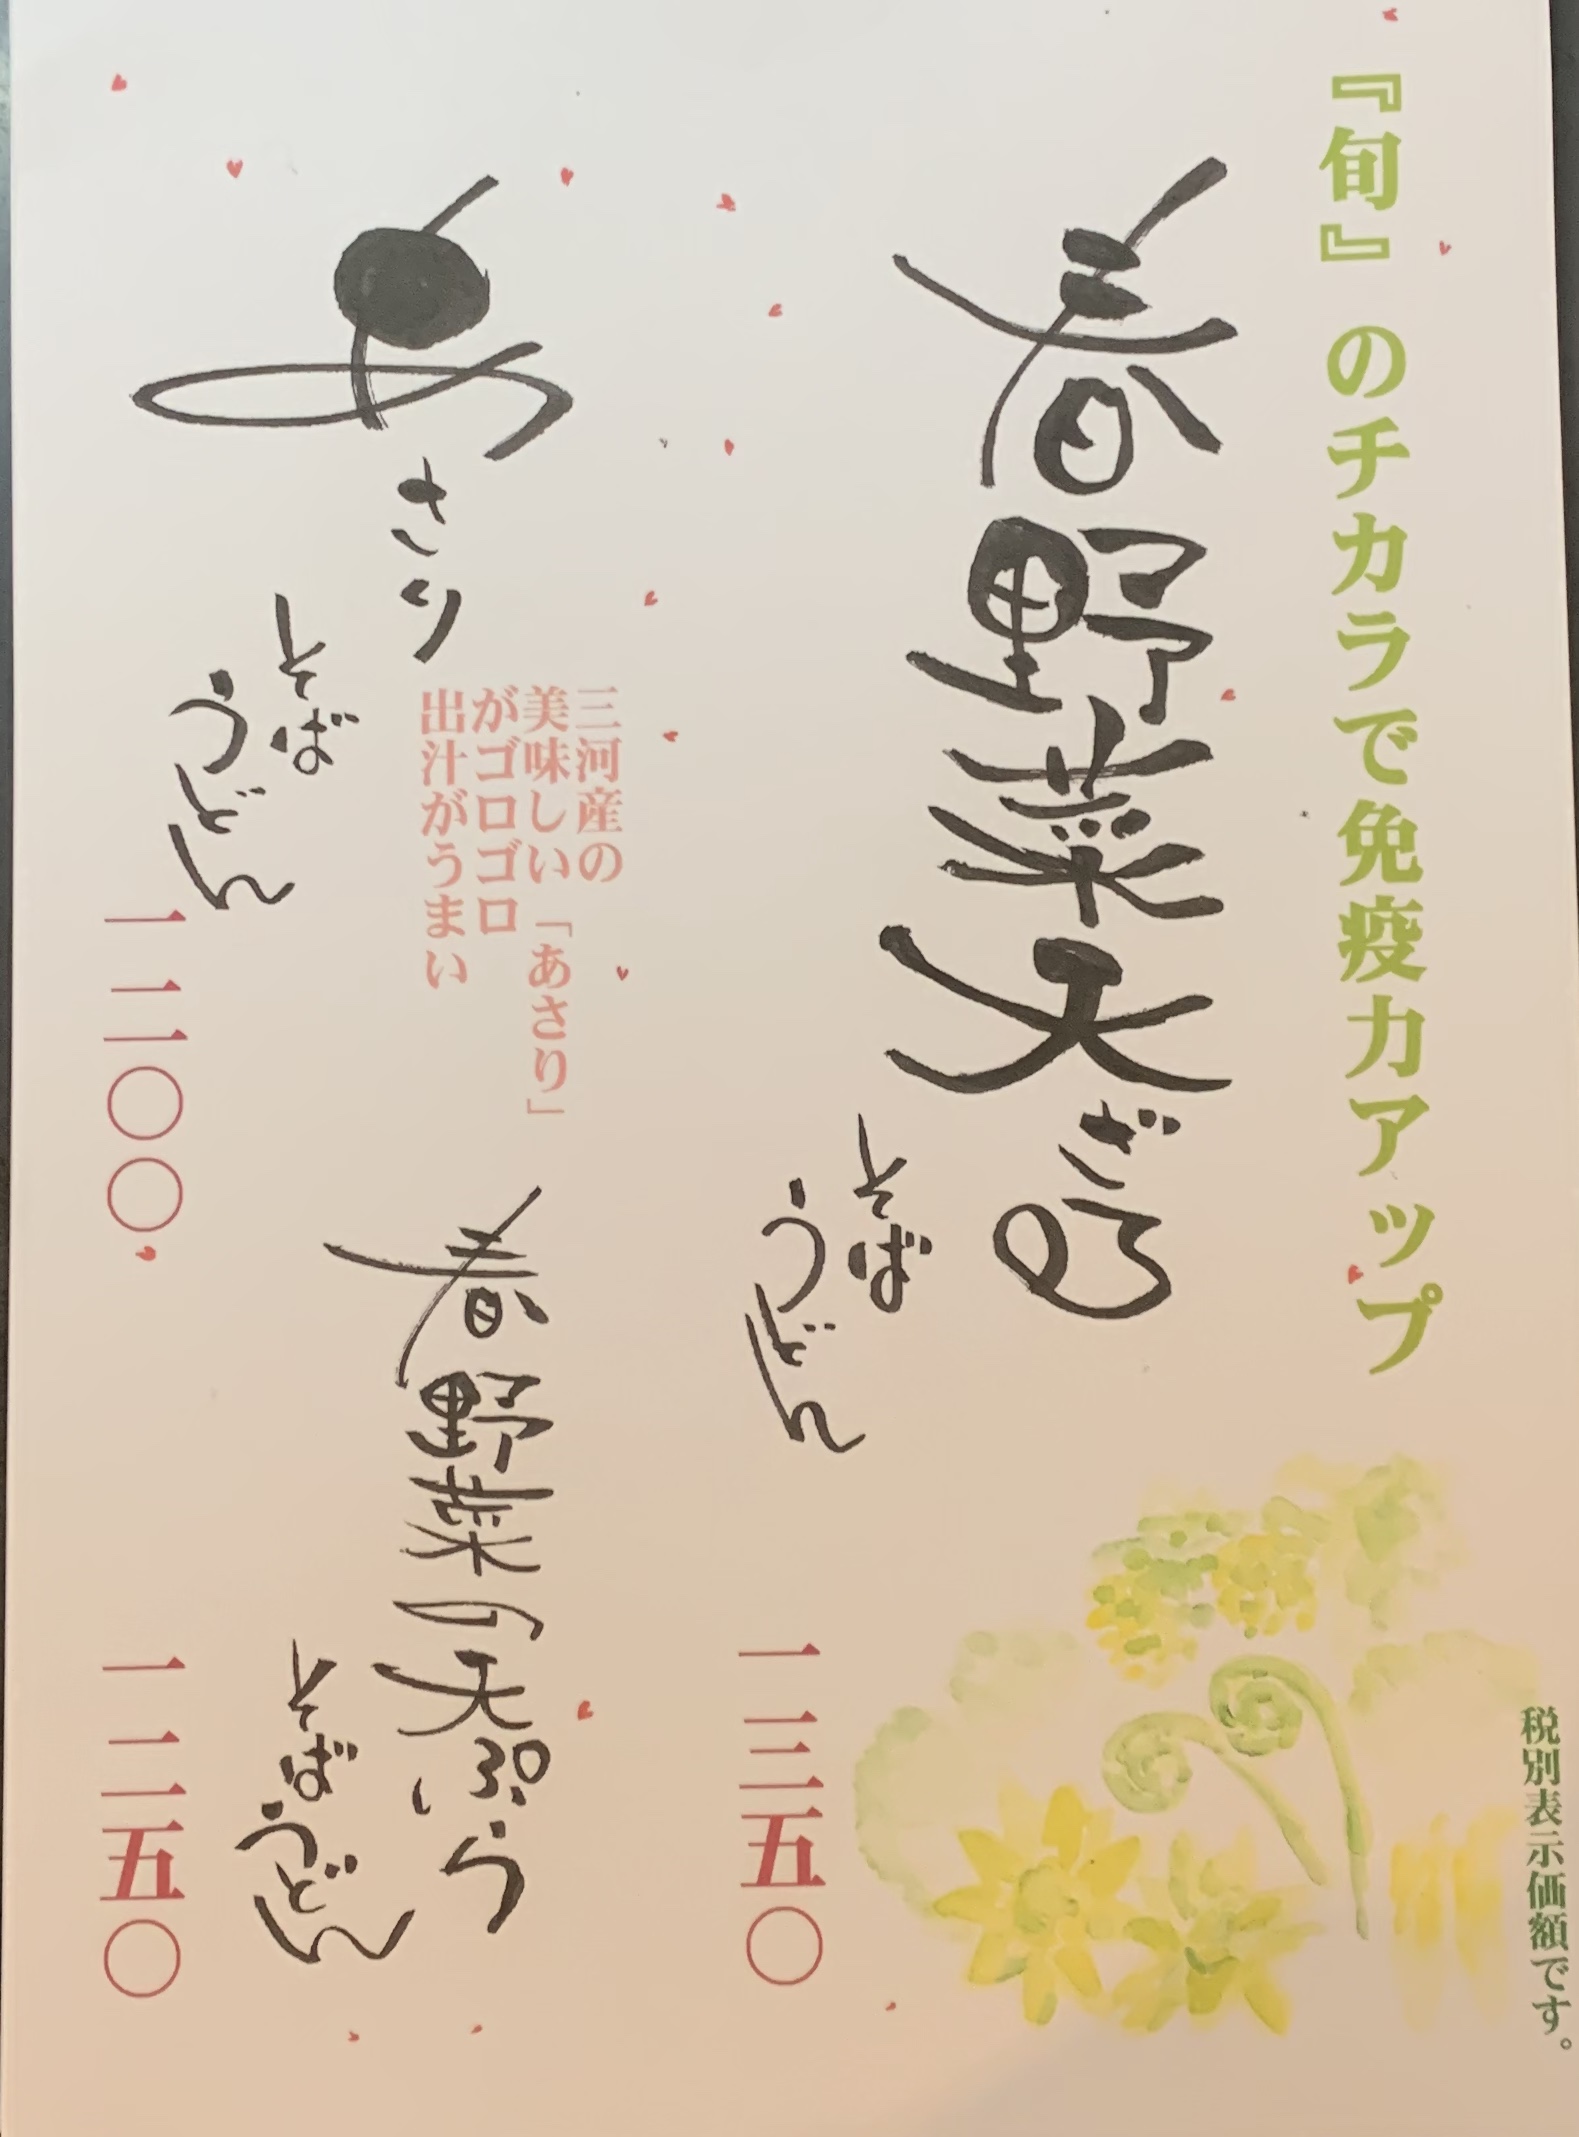 『旬』のチカラで免疫力アップ
税別表示価額です。
春野菜天ざる
そば
うどん
一三五〇
あさり
三河産の
美味しい「あさり」
がゴロゴロ
出汁がうまい
そば
うどん
一二〇〇
春野菜の天ぷら
そば
うどん
一二五〇